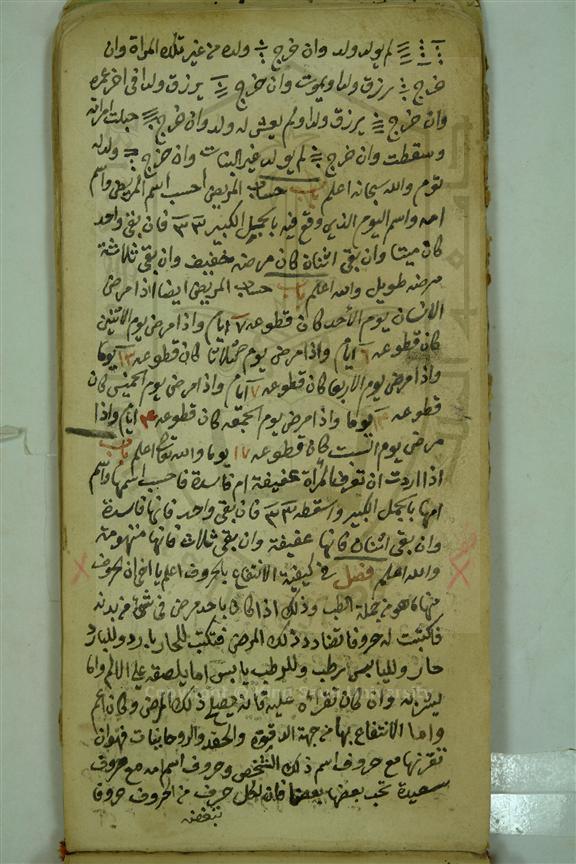 لم يولد ولد وان خرج ولده من غير تلك المراة وان
خرج يرزق ولدا ويموت وان خرج يرزق ولدا في اخر عمره
وان خرج يرزق ولدا ولم يعش له ولد وان خرج حبلت امراته
وسقطت وان خرج لم يولد غير البنات وان خرج ولد له
توم والله سبحانه اعلم باب حساب المريض احسب اسم المريض واسم
امه واسم اليوم الذي وقع فيه بالجمل الكبير ٣ ٣ فان بقى واحد
كان ميتا وان بقى اثنان كان مرضه خفيف وان بقى ثلاثة
مرضه طويل والله اعلم باب حساب المريض ايضا اذا مرض
الانسان يوم الأحد كان قطوعه ٧ ايام واذا مرض يوم الاثنين
كان قطوعه ٦ ايام واذا مرض يوم كان قطوعه ١٣ يوما
واذا مرض يوم الاربعا كان قطوعه ٧ ايام واذا مرض يوم الخميس كان
قطوعه يوما واذا مرض يوم الجمعة كان قطوعه ايام واذا
مرض يوم السبت كان قطوعه ١٧ يوما والله اعلم باب
اذا اردت ان تعرف المراة عفيفة ام فاسدة فاحسب اسمها واسم
امها بالجمل الكبير واسقطه ٣ ٣ فان بقى واحد فانها فاسدة
وان بقى اثنان فانها عفيفة وان بقى ثلاث فانها متهومة
والله اعلم فصل في كيفية الانتفاع بالحروف اعلم يا اخي ان الحروف
منها ما هو من جملة الطب وذلك اذا كان باحد مرض في شئ من بدنه
فاكتبت له حروفا تضادد ذلك المرض فتكتب للحار بارد وللبارد
حار ولليابس رطب وللرطب يابس اما يلصقه على الالم واما
يشربه وان كان تقراه عليه فانه يحصل ذلك المرض وكان اعم
واما الانتفاع بها من جهة والحقد والروحانيات فهو ان
تقرنها مع حروف اسم ذلك الشخص وحروف اسم امه مع حروف
سعيدة تحب بعضها بعضا فان لكل حرف من الحروف حروفا
تبغضه